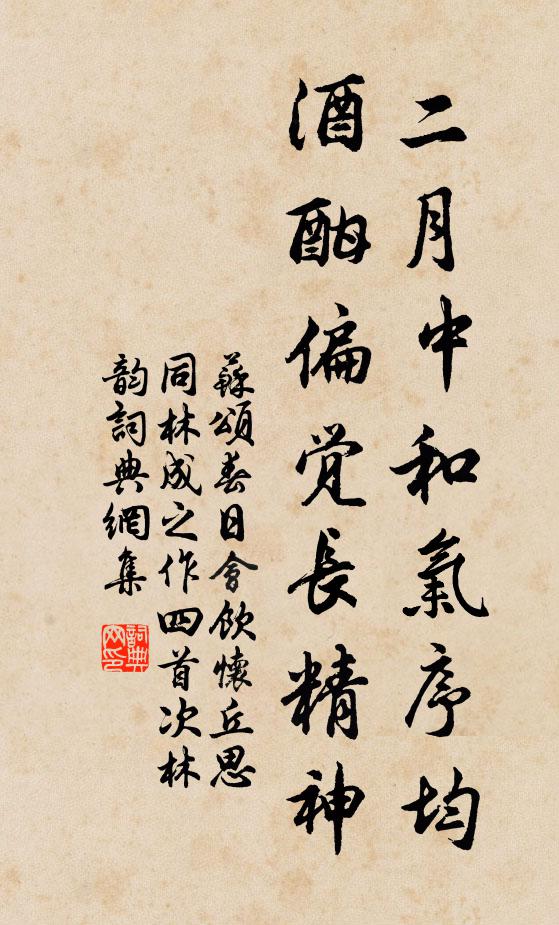 二月中和氣序均
酒酣偏觉長精神
蘇頌春日會飲懷丘思
同林成之作四首次林
韵詞典網集
詞典网印